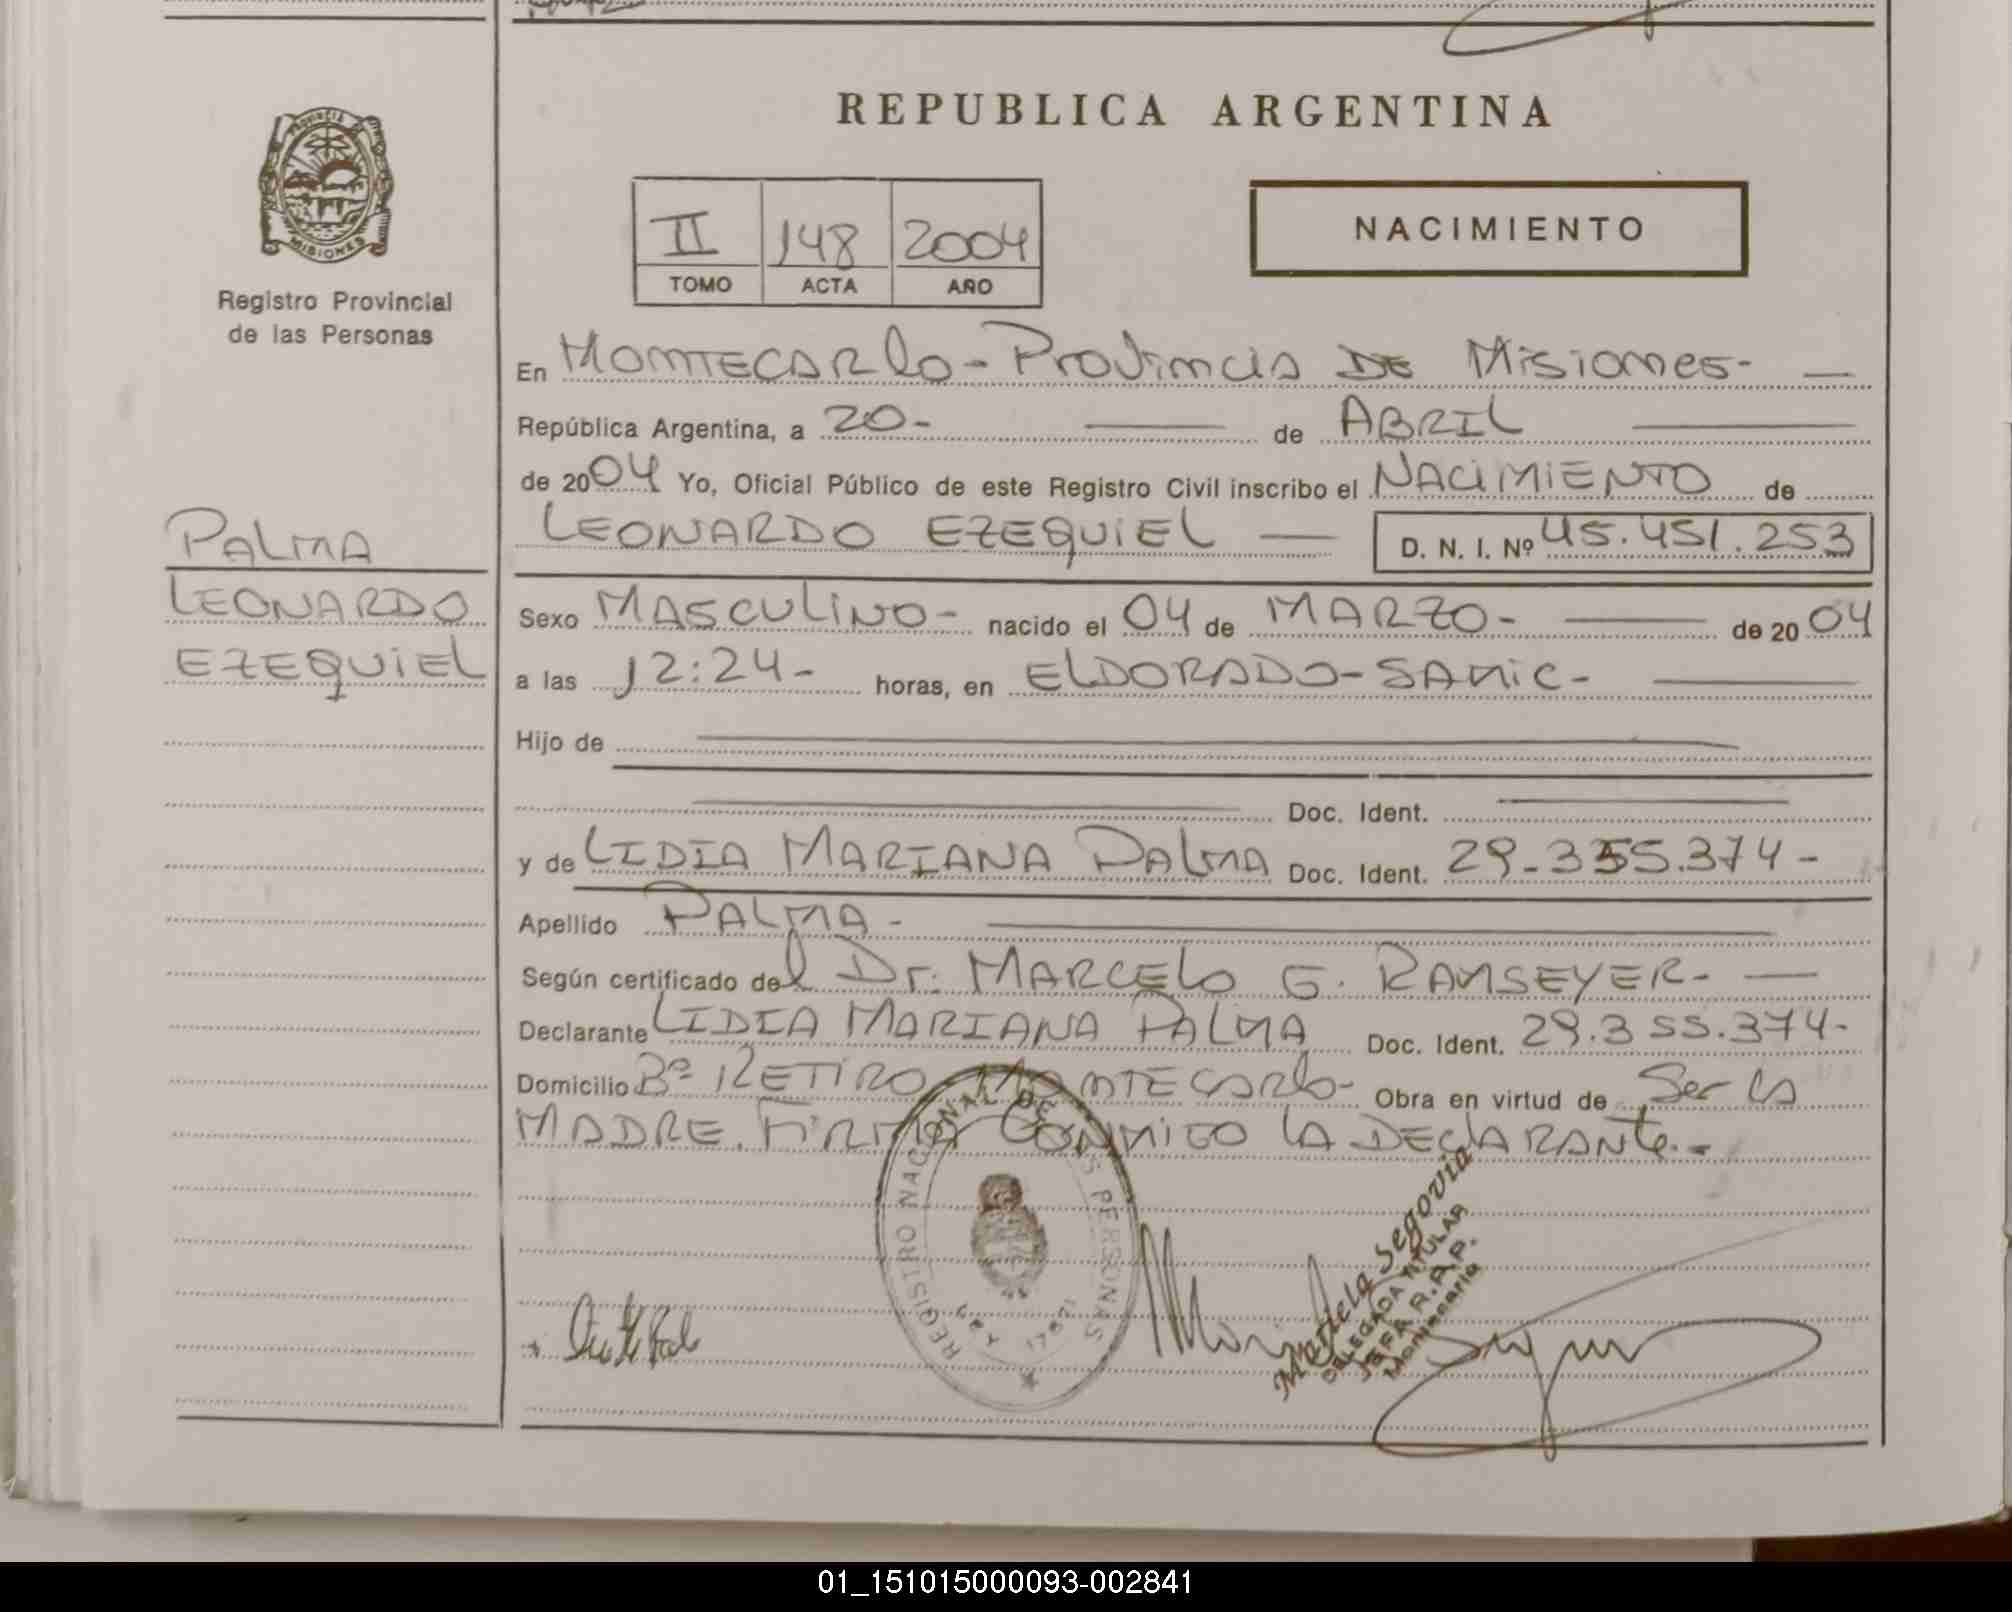 REPUBLICA ARGENTINA
PROVINCIA DE
MISIONES
Registro Provincial
de las Personas
II 148 2004
TOMO ACTA AÑO
NACIMIENTO
En MONTECARLO - PROVINCIA DE MISIONES -
República Argentina, a 20 - de ABRIL
de 2004 Yo, Oficial Público de este Registro Civil inscribo el NACIMIENTO de
LEONARDO EZEQUIEL D. N. I. Nº 45.451.253
PALMA
LEONARDO
EZEQUIEL
Sexo MASCULINO - nacido el 04 de MARZO - de 2004
a las 12:24 - horas, en ELDORADO - SAMIC -
Hijo de
Doc. Ident.
y de LIDIA MARIANA PALMA Doc. Ident. 29.355.374 -
Apellido PALMA -
Según certificado del Dr. MARCELO G. RAMSEYER -
Declarante LIDIA MARIANA PALMA Doc. Ident. 29.355.374 -
Domicilio Bº RETIRO MONTECARLO - Obra en virtud de Ser la
MADRE. FIRMA CONMIGO LA DECLARANTE. -
REGISTRO NACIONAL DE LAS PERSONAS
LEY 17671
Mariela Segovia
DELEGADA TITULAR
JEFA R.A.P.
Montecarlo
01_151015000093-002841